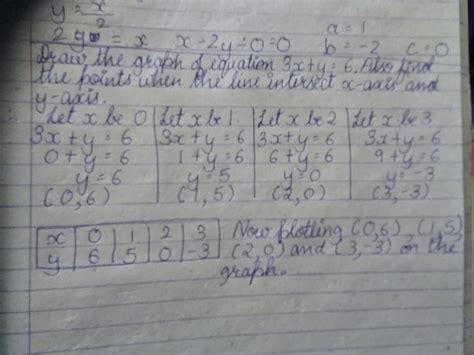 y = x/2
2y = x   x - 2y + 0 = 0   a = 1
b = -2   c = 0
Draw the graph of equation 3x + y = 6. Also find
the points when the line intersect x-axis and
y-axis.
Let x be 0 | Let x be 1 | Let x be 2 | Let x be 3
3x + y = 6 | 3x + y = 6 | 3x + y = 6 | 3x + y = 6
0 + y = 6 | 1 + y = 6 | 6 + y = 6 | 9 + y = 6
y = 6 | y = 5 | y = 0 | y = -3
(0, 6) | (1, 5) | (2, 0) | (3, -3)
x | 0 | 1 | 2 | 3   Now plotting (0,6), (1,5)
y | 6 | 5 | 0 | -3   (2,0) and (3,-3) on the
graph.